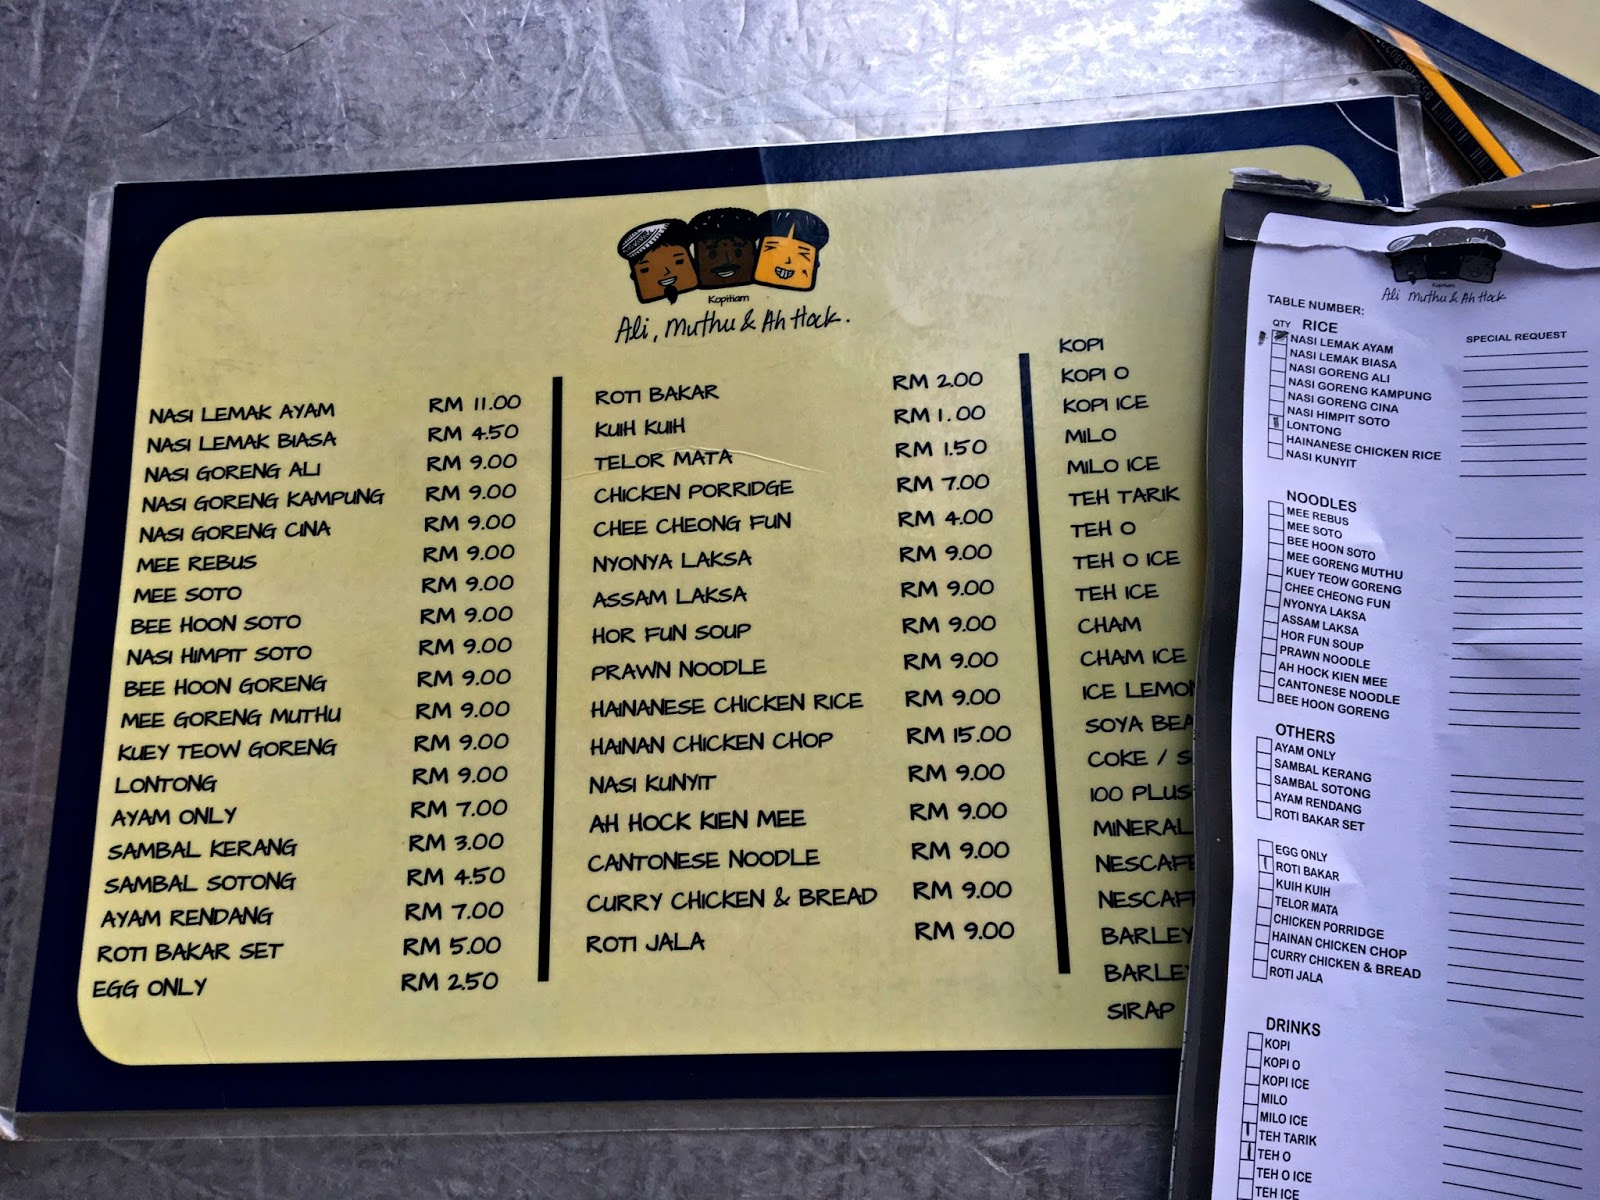 Kopitiam
Ali, Muthu & Ah Hock.
NASI LEMAK AYAM RM 11.00
NASI LEMAK BIASA RM 4.50
NASI GORENG ALI RM 9.00
NASI GORENG KAMPUNG RM 9.00
NASI GORENG CINA RM 9.00
MEE REBUS RM 9.00
MEE SOTO RM 9.00
BEE HOON SOTO RM 9.00
NASI HIMPIT SOTO RM 9.00
BEE HOON GORENG RM 9.00
MEE GORENG MUTHU RM 9.00
KUEY TEOW GORENG RM 9.00
LONTONG RM 9.00
AYAM ONLY RM 7.00
SAMBAL KERANG RM 3.00
SAMBAL SOTONG RM 4.50
AYAM RENDANG RM 7.00
ROTI BAKAR SET RM 5.00
EGG ONLY RM 2.50
ROTI BAKAR RM 2.00
KUIH KUIH RM 1.00
TELOR MATA RM 1.50
CHICKEN PORRIDGE RM 7.00
CHEE CHEONG FUN RM 4.00
NYONYA LAKSA RM 9.00
ASSAM LAKSA RM 9.00
HOR FUN SOUP RM 9.00
PRAWN NOODLE RM 9.00
HAINANESE CHICKEN RICE RM 9.00
HAINAN CHICKEN CHOP RM 15.00
NASI KUNYIT RM 9.00
AH HOCK KIEN MEE RM 9.00
CANTONESE NOODLE RM 9.00
CURRY CHICKEN & BREAD RM 9.00
ROTI JALA RM 9.00
KOPI
KOPI O
KOPI ICE
MILO
MILO ICE
TEH TARIK
TEH O
TEH O ICE
TEH ICE
CHAM
CHAM ICE
ICE LEMON
SOYA BEA
COKE / S
100 PLUS
MINERAL
NESCAFE
NESCAF
BARLEY
BARLEY
SIRAP
Kopitiam
Ali Muthu & Ah Hock
TABLE NUMBER:
QTY RICE SPECIAL REQUEST
NASI LEMAK AYAM
NASI LEMAK BIASA
NASI GORENG ALI
NASI GORENG KAMPUNG
NASI GORENG CINA
NASI HIMPIT SOTO
LONTONG
HAINANESE CHICKEN RICE
NASI KUNYIT
NOODLES
MEE REBUS
MEE SOTO
BEE HOON SOTO
MEE GORENG MUTHU
KUEY TEOW GORENG
CHEE CHEONG FUN
NYONYA LAKSA
ASSAM LAKSA
HOR FUN SOUP
PRAWN NOODLE
AH HOCK KIEN MEE
CANTONESE NOODLE
BEE HOON GORENG
OTHERS
AYAM ONLY
SAMBAL KERANG
SAMBAL SOTONG
AYAM RENDANG
ROTI BAKAR SET
EGG ONLY
ROTI BAKAR
KUIH KUIH
TELOR MATA
CHICKEN PORRIDGE
HAINAN CHICKEN CHOP
CURRY CHICKEN & BREAD
ROTI JALA
DRINKS
KOPI
KOPI O
KOPI ICE
MILO
MILO ICE
TEH TARIK
TEH O
TEH O ICE
TEH ICE